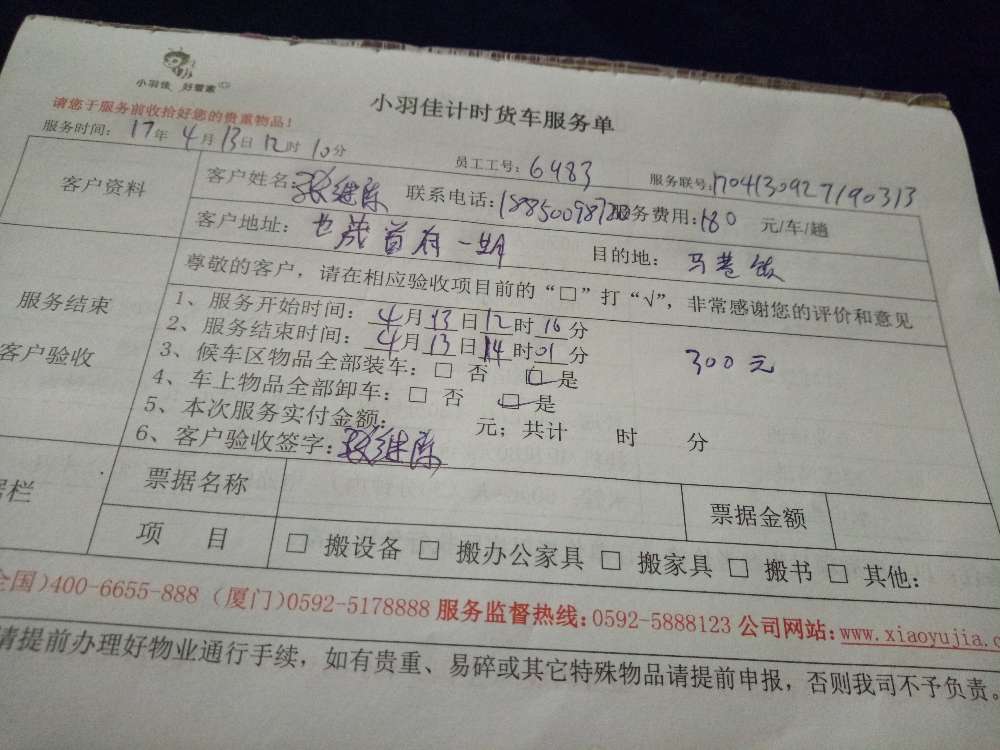 小羽佳 好管家
小羽佳计时货车服务单
请您于服务前收拾好您的贵重物品！
服务时间：17年4月13日12时10分 员工工号：6483 服务联号：1704130927190313
客户资料 客户姓名：张继陈 联系电话： 服务费用：180 元/车/趟
客户地址：世茂首府一期 目的地：马巷
尊敬的客户，请在相应验收项目前的“□”打“√”，非常感谢您的评价和意见
服务结束
客户验收
1、服务开始时间：4月13日12时16分
2、服务结束时间：4月13日14时01分 300元
3、候车区物品全部装车：□ 否 ☑是
4、车上物品全部卸车：□ 否 ☑是
5、本次服务实付金额： 元；共计 时 分
6、客户验收签字：张继陈
据栏 票据名称 票据金额
项 目 □ 搬设备 □ 搬办公家具 □ 搬家具 □ 搬书 □ 其他：
全国)400-6655-888 (厦门)0592-5178888 服务监督热线：0592-5888123 公司网站：www.xiaoyujia.c
请提前办理好物业通行手续，如有贵重、易碎或其它特殊物品请提前申报，否则我司不予负责。